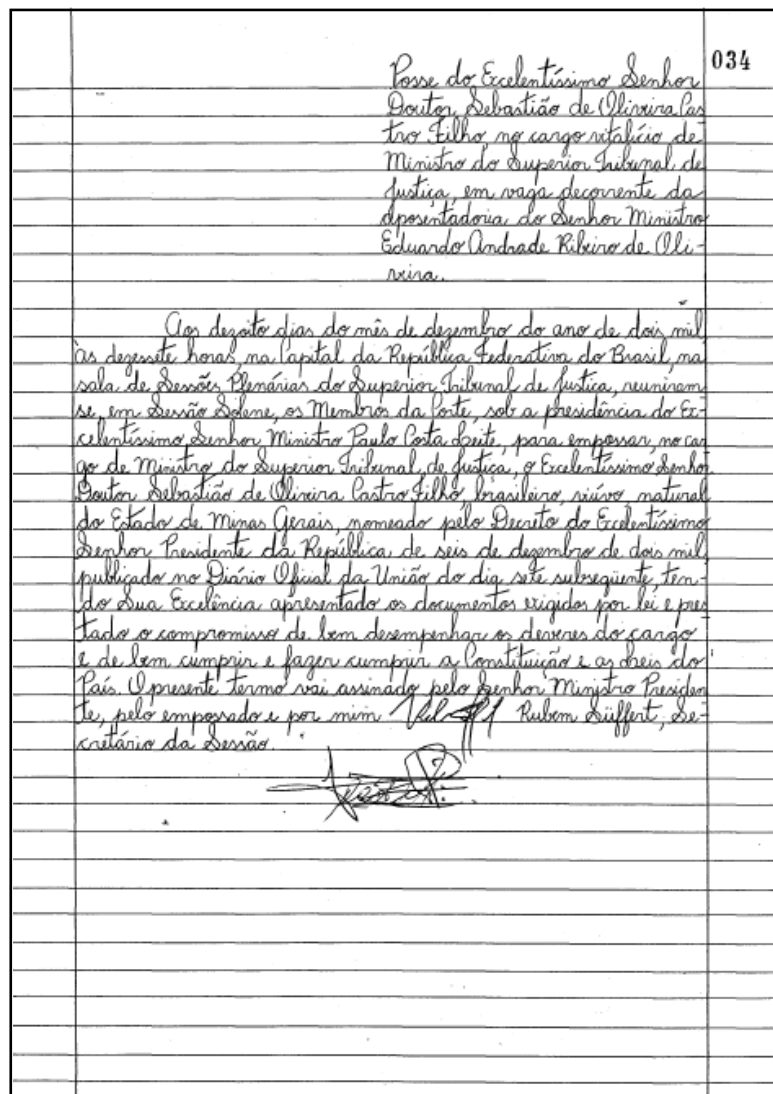 034
Posse do Excelentíssimo Senhor
Doutor Sebastião de Oliveira Cas
tro Filho, no cargo vitalício de
Ministro do Superior Tribunal de
Justiça, em vaga decorrente da
aposentadoria do Senhor Ministro
Eduardo Andrade Ribeiro de Oli-
veira.
Aos dezoito dias do mês de dezembro do ano de dois mil,
às dezessete horas, na Capital da República Federativa do Brasil, na
sala de Sessões Plenárias do Superior Tribunal de Justiça, reuniram
se, em Sessão Solene, os Membros da Corte, sob a presidência do Ex-
celentíssimo Senhor Ministro Paulo Costa Leite, para empossar, no car
go de Ministro do Superior Tribunal de Justiça, o Excelentíssimo Senhor
Doutor Sebastião de Oliveira Castro Filho, brasileiro, viúvo, natural
do Estado de Minas Gerais, nomeado pelo Decreto do Excelentíssimo
Senhor Presidente da República de seis de dezembro de dois mil,
publicado no Diário Oficial da União do dia sete subsequente, ten-
do Sua Excelência apresentado os documentos exigidos por lei e pres
tado o compromisso de bem desempenhar os deveres do cargo
e de bem cumprir e fazer cumprir a Constituição e as Leis do
País. O presente termo vai assinado pelo Senhor Ministro Presiden
te, pelo empossado e por mim Rubem Süffert, Se-
cretário da Sessão.